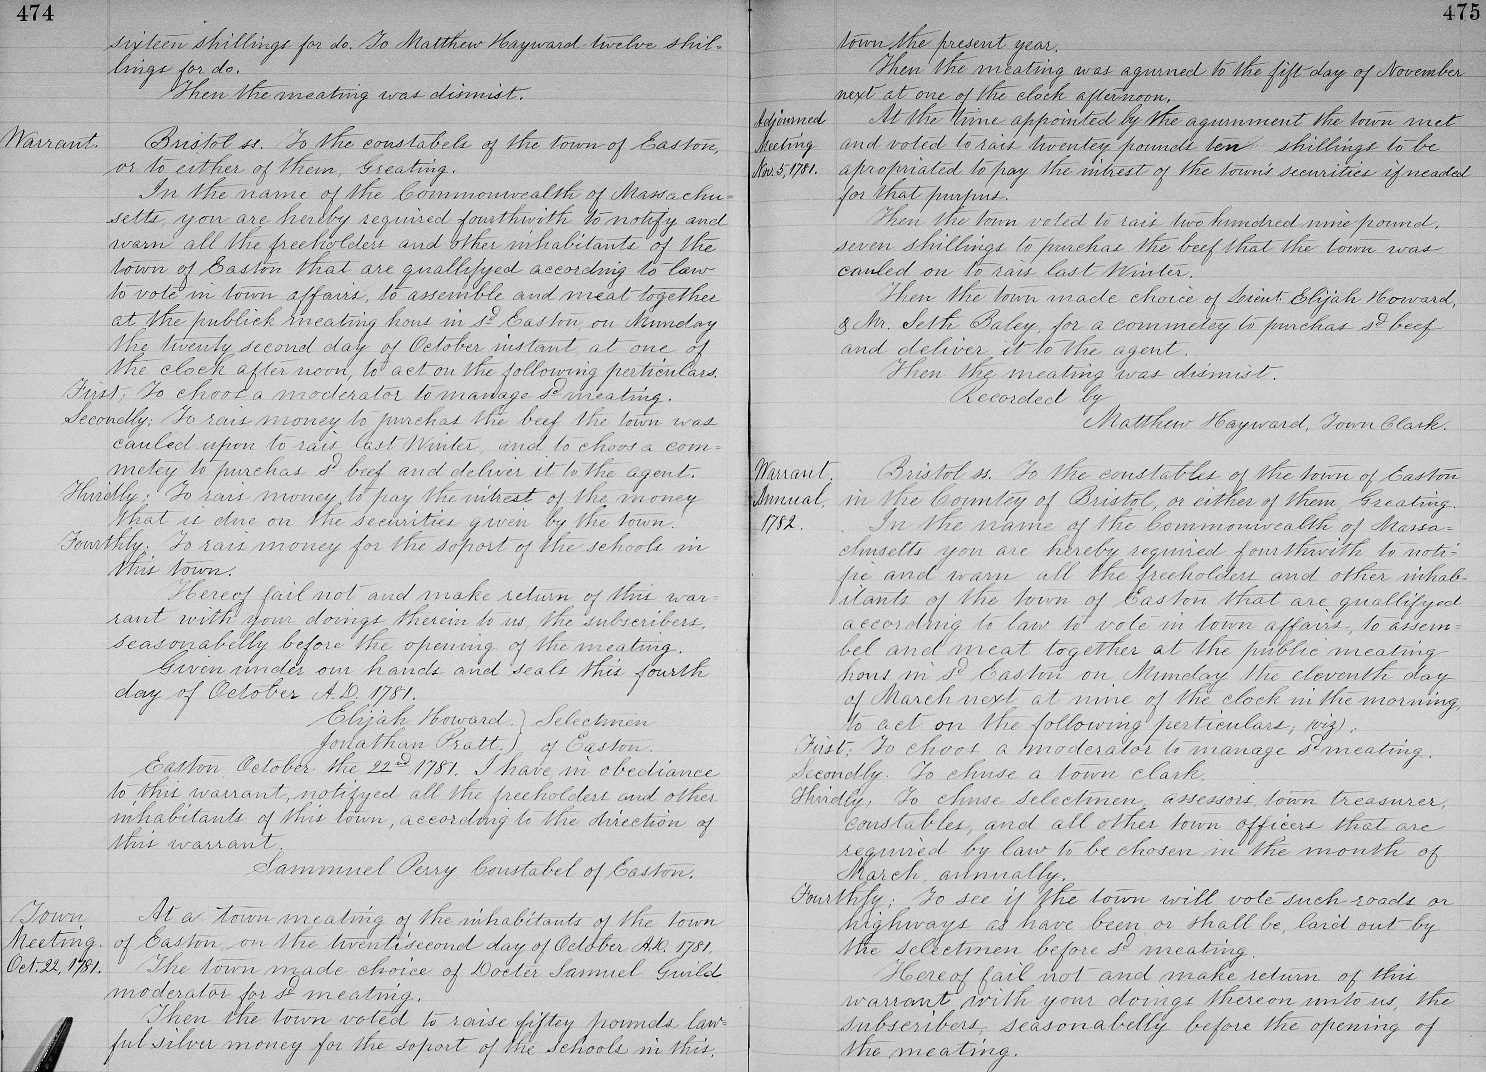 474
sixteen shillings for do. To Matthew Hayward twelve shil=
lings for do.
Then the meating was dismist.
Warrant. Bristol ss. To the constabels of the town of Easton,
or to either of them, Greating.
In the name of the Commonwealth of Massachu=
setts, you are hereby required fourthwith to notify and
warn all the freeholders and other inhabitants of the
town of Easton that are quallifyed according to law
to vote in town affairs, to assemble and meat together
at the publick meating hous in sd Easton, on Munday
the twenty second day of October instant, at one of
the clock after noon, to act on the following perticulars.
First; To choos a moderator to manage sd meating.
Secondly; To rais money to purchas the beef the town was
cauled upon to rais last Winter, and to choos a com=
metey to purchas sd beef and deliver it to the agent.
Thirdly; To rais money to pay the intrest of the money
that is due on the securities given by the town.
Fourthly. To rais money for the soport of the schools in
this town.
Hereof fail not and make return of this war=
rant with your doings therein to us, the subscribers,
seasonabelly before the opening of the meating.
Given under our hands and seals this fourth
day of October A.D. 1781.
Elijah Howard. } Selectmen
Jonathan Pratt. } of Easton.
Easton October the 22nd 1781. I have, in obediance
to this warrant, notifyed all the freeholders and other
inhabitants of this town, according to the direction of
this warrant.
Sammuel Perry Constabel of Easton.
Town At a town meating of the inhabitants of the town
Meeting of Easton, on the twentisecond day of October A.D. 1781.
Oct. 22, 1781. The town made choice of Docter Samuel Guild
moderator for sd meating.
Then the town voted to raise fiftey pounds law=
ful silver money for the soport of the schools in this
475
town the present year.
Then the meating was agurned to the fift day of November
next at one of the clock afternoon.
Adjourned At the time appointed by the agurnment the town met
Meeting and voted to rais twentey pounds ten shillings to be
Nov. 5, 1781. apropriated to pay the intrest of the town's securities if neaded
for that purpus.
Then the town voted to rais two hundred nine pound,
seven shillings to purchas the beef that the town was
cauled on to rais last Winter.
Then the town made choice of Leient. Elijah Howard,
& Mr. Seth Baley, for a commetey to purchas sd beef
and deliver it to the agent.
Then the meating was dismist.
Recorded by
Matthew Hayward, Town Clark.
Warrant. Bristol ss. To the constables of the town of Easton
Annual, in the Countey of Bristol, or either of them, Greating.
1782. In the name of the Commonwealth of Massa=
chusetts you are hereby required fourthwith to noti=
fie and warn all the freeholders and other inhab=
itants of the town of Easton that are quallifyed
according to law to vote in town affairs, to assem=
bel and meat together at the public meating
hous in sd Easton on Munday the eleventh day
of March next at nine of the clock in the morning,
to act on the following perticulars, (viz).
First; To choos a moderator to manage sd meating.
Secondly. To chuse a town clark.
Thirdly; To chuse selectmen, assessors, town treasurer,
constables, and all other town officers that are
required by law to be chosen in the month of
March, annually.
Fourthly; To see if the town will vote such roads or
highways as have been, or shall be, laid out by
the selectmen before sd meating.
Hereof fail not and make return of this
warrant, with your doings thereon unto us, the
subscribers, seasonabelly before the opening of
the meating.